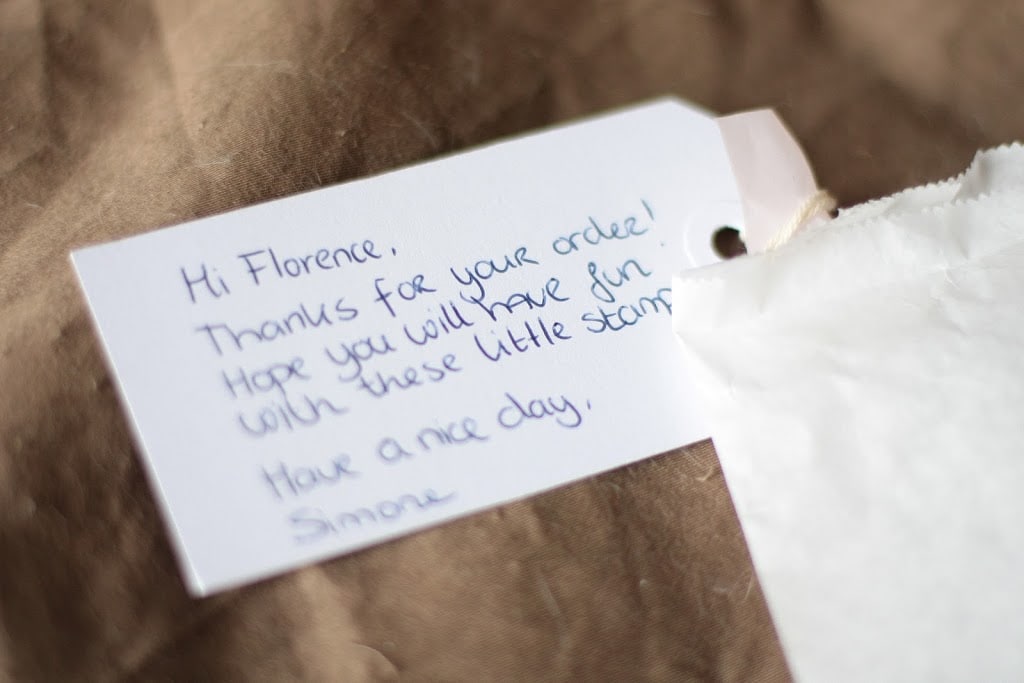 Hi Florence,
Thanks for your order!
Hope you will have fun
with these little stamp
Have a nice day,
Simone